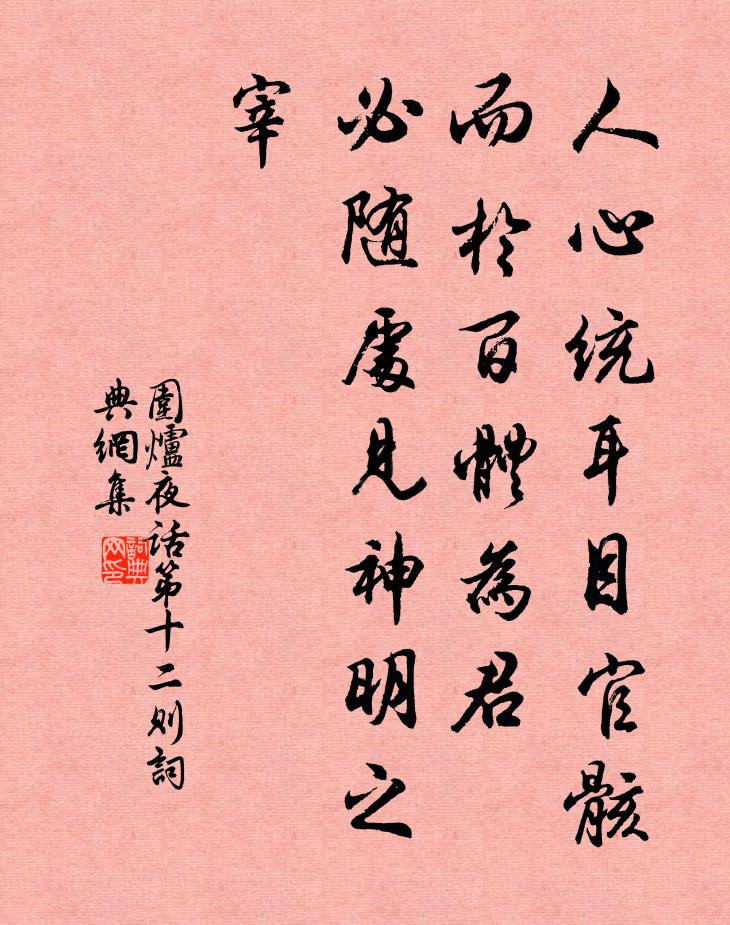 人心統耳目官骸
而於百體為君
必随處見神明之
宰
圍爐夜话第十二则詞
典網集
詞典
网印